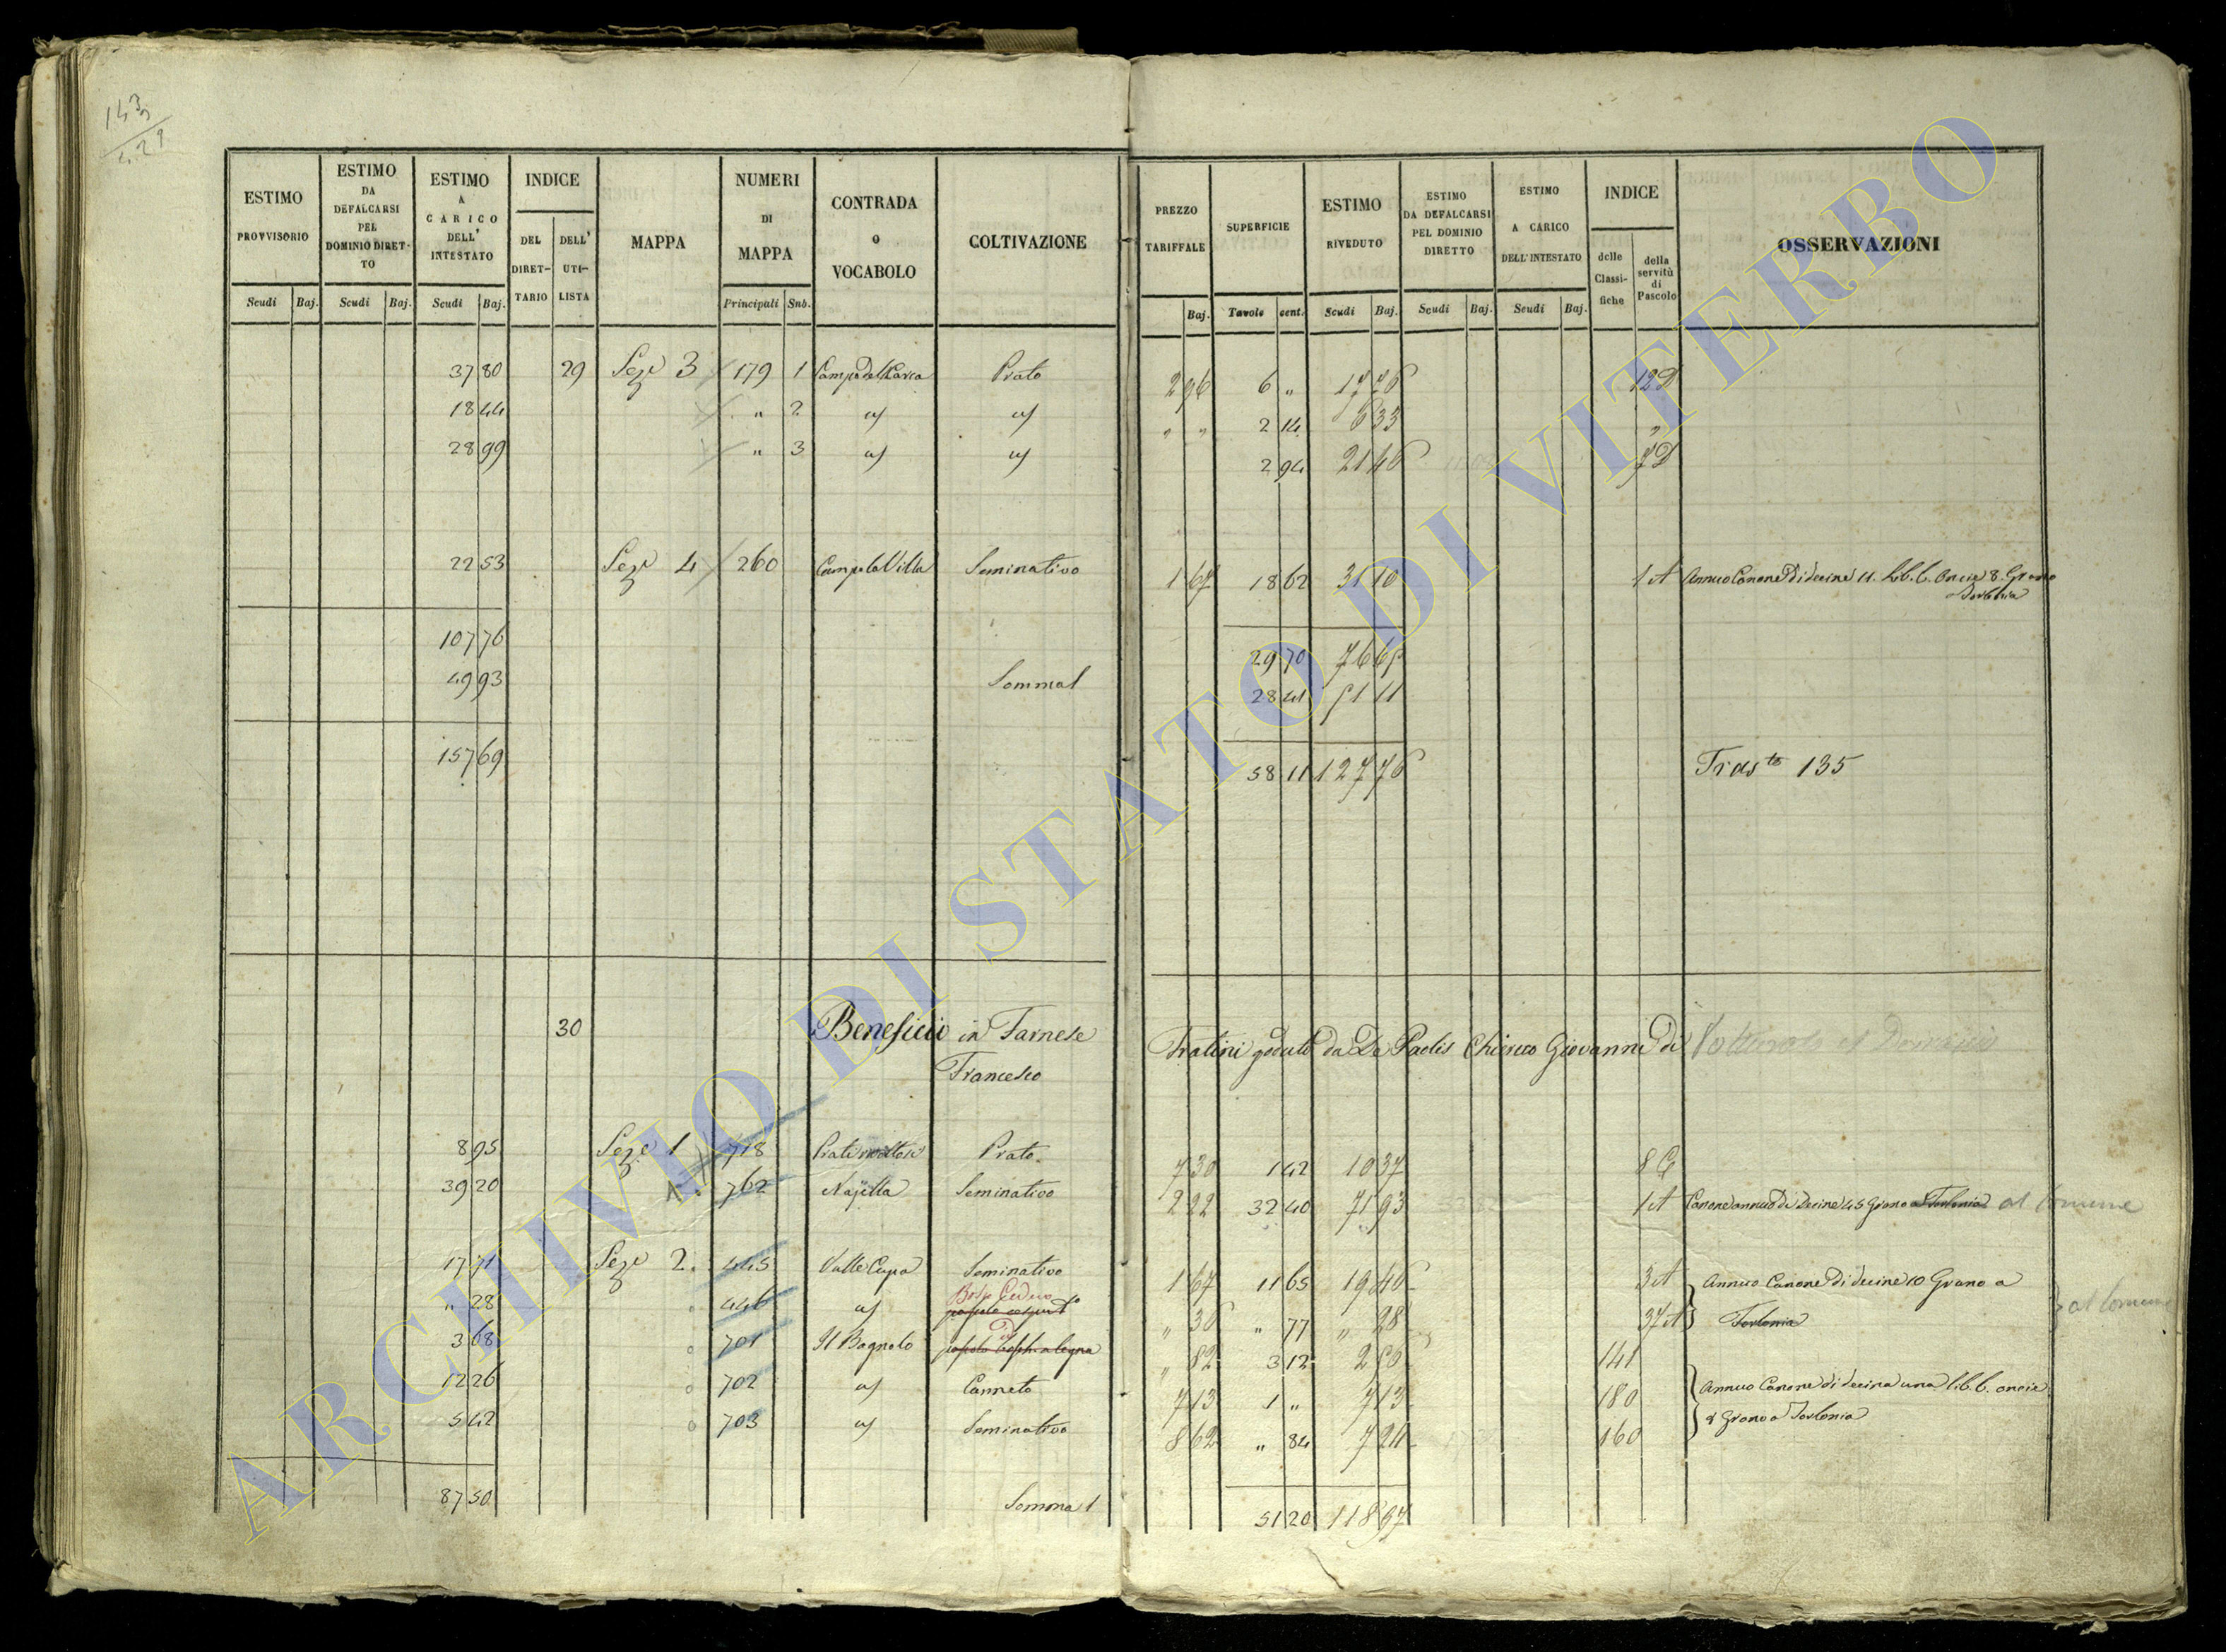 143
429
ESTIMO PROVVISORIO Scudi Baj.
ESTIMO DA DEFALCARSI PEL DOMINIO DIRET-TO Scudi Baj.
ESTIMO A CARICO DELL' INTESTATO Scudi Baj.
INDICE DEL DIRET-TARIO DELL' UTI-LISTA
MAPPA
NUMERI DI MAPPA Principali Sub.
CONTRADA O VOCABOLO
COLTIVAZIONE
PREZZO TARIFFALE Baj.
SUPERFICIE Tavole cent.
ESTIMO RIVEDUTO Scudi Baj.
ESTIMO DA DEFALCARSI PEL DOMINIO DIRETTO Scudi Baj.
ESTIMO A CARICO DELL'INTESTATO Scudi Baj.
INDICE delle Classi-fiche della servitù di Pascolo
OSSERVAZIONI
37 80 29 Seze 3 179 1 Prato 2 96 6 " 17 76 12 D
18 44 " 2 " " 2 14 6 33 "
28 99 " 3 2 94 21 46 7 D
22 53 Seze 4 260 Campo la Villa Seminativo 1 67 18 62 31 10 1 A Annuo Canone di decine 11. Lib. 6. Oncie 8 Grano
107 76 29 70 76 65
49 93 Somma 28 41 51 11
157 69 58 11 127 76 Trasto 135
30 Beneficio in Farnese Fratini goduto da De Paolis Chierico Giovanni di
Francesco
8 95 Seze 1 718 Prato 7 30 1 42 10 37 8 C
39 20 762 Seminativo 2 22 32 40 71 93 1 A Canone annuo di decine 45 Grano a Torlonia al Comune
17 71 Seze 2. 445 Valle Cupa Seminativo 1 67 11 65 19 46 3 A Annuo Canone di decine 10 Grano a
" 28 446 Bosco Ceduo " 36 " 77 " 28 37 A Torlonia al Comune
3 68 701 Il Bagnolo " 82 3 12 2 56 141
12 26 702 Canneto 7 13 1 " 7 13 180 Annuo Canone di decina una lib. 6. oncie
5 42 703 Seminativo 8 62 " 84 7 24 160 8 Grano a Torlonia
87 50 Somma 51 20 118 97
ARCHIVIO DI STATO DI VITERBO